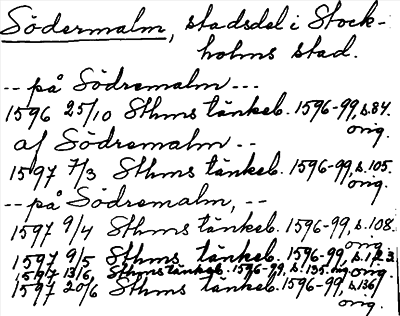 Södermalm, stadsdel i Stock-
holms stad.
-- på Södremalm ---
1596 25/10 Sthms tänkeb. 1596-99, s.84.
orig.
af Södremalm --
1597 7/3 Sthms tänkeb. 1596-99, s.105.
orig.
-- på Södremalm, --
1597 9/4 Sthms tänkeb. 1596-99, s.108.
orig.
1597 9/5 Sthms tänkeb. 1596-99, s.123.
orig.
1597 13/6, Sthms tänkeb. 1596-99, s.135. orig.
1597 20/6 Sthms tänkeb. 1596-99, s.136
orig.